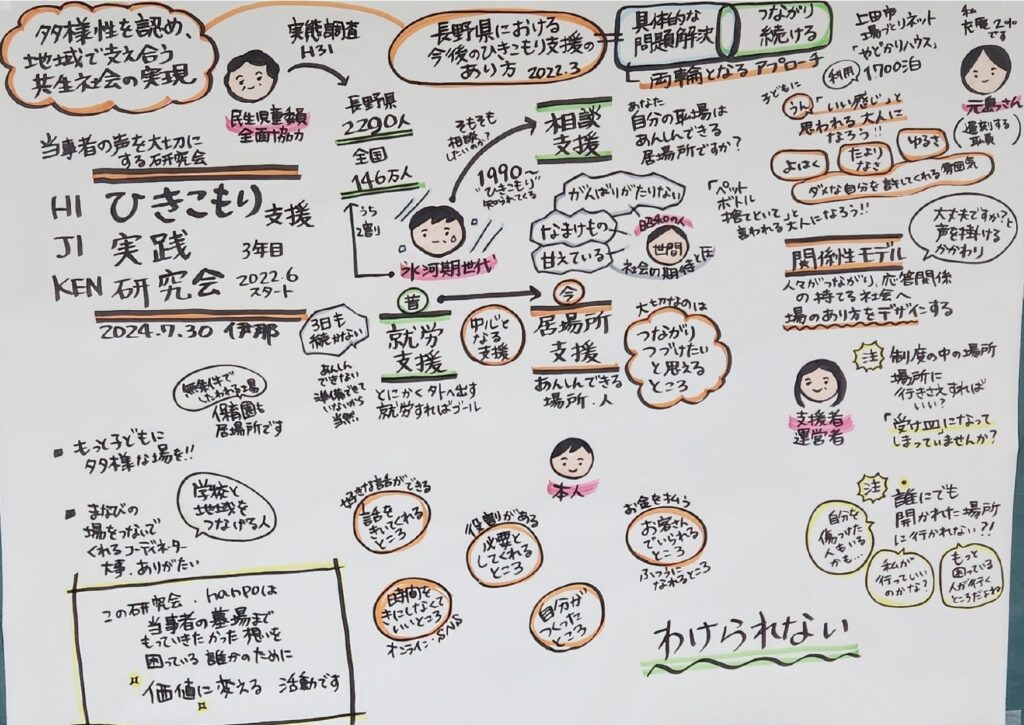 多様性を認め、
地域で支え合う
共生社会の実現
民生児童委員
全面協力
実態調査
H31
長野県における
今後のひきこもり支援の
あり方 2022.3
具体的な
問題解決
つながり
続ける
両輪となるアプローチ
上田市
場づくりネット
「やどかりハウス」
利用
1700泊
私
充度2%
です
元島さん
遅刻する
職員
当事者の声を大切に
する研究会
HI ひきこもり支援
JI 実践 3年目
KEN 研究会 2022.6
スタート
2024.7.30 伊那
長野県
2290人
全国
146万人
うち
2割
そもそも
相談
したいのか?
1990〜
"ひきこもり"
知られてくる
氷河期世代
相談
支援
あなた
自分の職場は
あんしんできる
居場所ですか?
がんばりがたりない
なまけもの
甘えている
昭和の人
世間
社会の期待と圧
子どもに
うん「いい感じ」と
思われる大人に
なろう!!
よはく
たより
なさ
ゆるさ
ダメな自分を許してくれる雰囲気
「ペット
ボトル
捨てといて」と
言われる大人になろう!!
大丈夫ですか?と
声を掛ける
かかわり
関係性モデル
人々がつながり、応答関係
の持てる社会へ
場のあり方をデザインする
昔
就労
支援
とにかく外へ出す
就労すればゴール
3日も
続かない
あんしん
できない
準備できて
いないから
当然
中心と
なる
支援
今
居場所
支援
あんしんできる
場所・人
大切なのは
つながり
つづけたい
と思える
ところ
支援者
運営者
注 制度の中の場所
場所に
行きさえすれば
いい?
「受け皿」になって
しまっていませんか?
無条件で
保育園も
居場所です
もっと子どもに
多様な場を!!
まなびの
場をつないで
くれるコーディネーター
大事。ありがたい
学校と
地域を
つなげる人
本人
好きな話ができる
話を
きいてくれる
ところ
役割がある
必要と
してくれる
ところ
お金を払う
お客さん
でいられる
ところ
ふつうに
なれるところ
時間を
きにしなくて
いいところ
オンライン・SNS
自分が
つくった
ところ
注 誰にでも
開かれた場所
に行かれない?!
自分を
傷つけた
人もいる
かも…
私が
行っていい
のかな?
もっと
困っている
人が行く
ところだよね
この研究会・hanpoは
当事者の墓場まで
もっていきたかった想いを
困っている誰かのために
価値に変える 活動です
わけられない